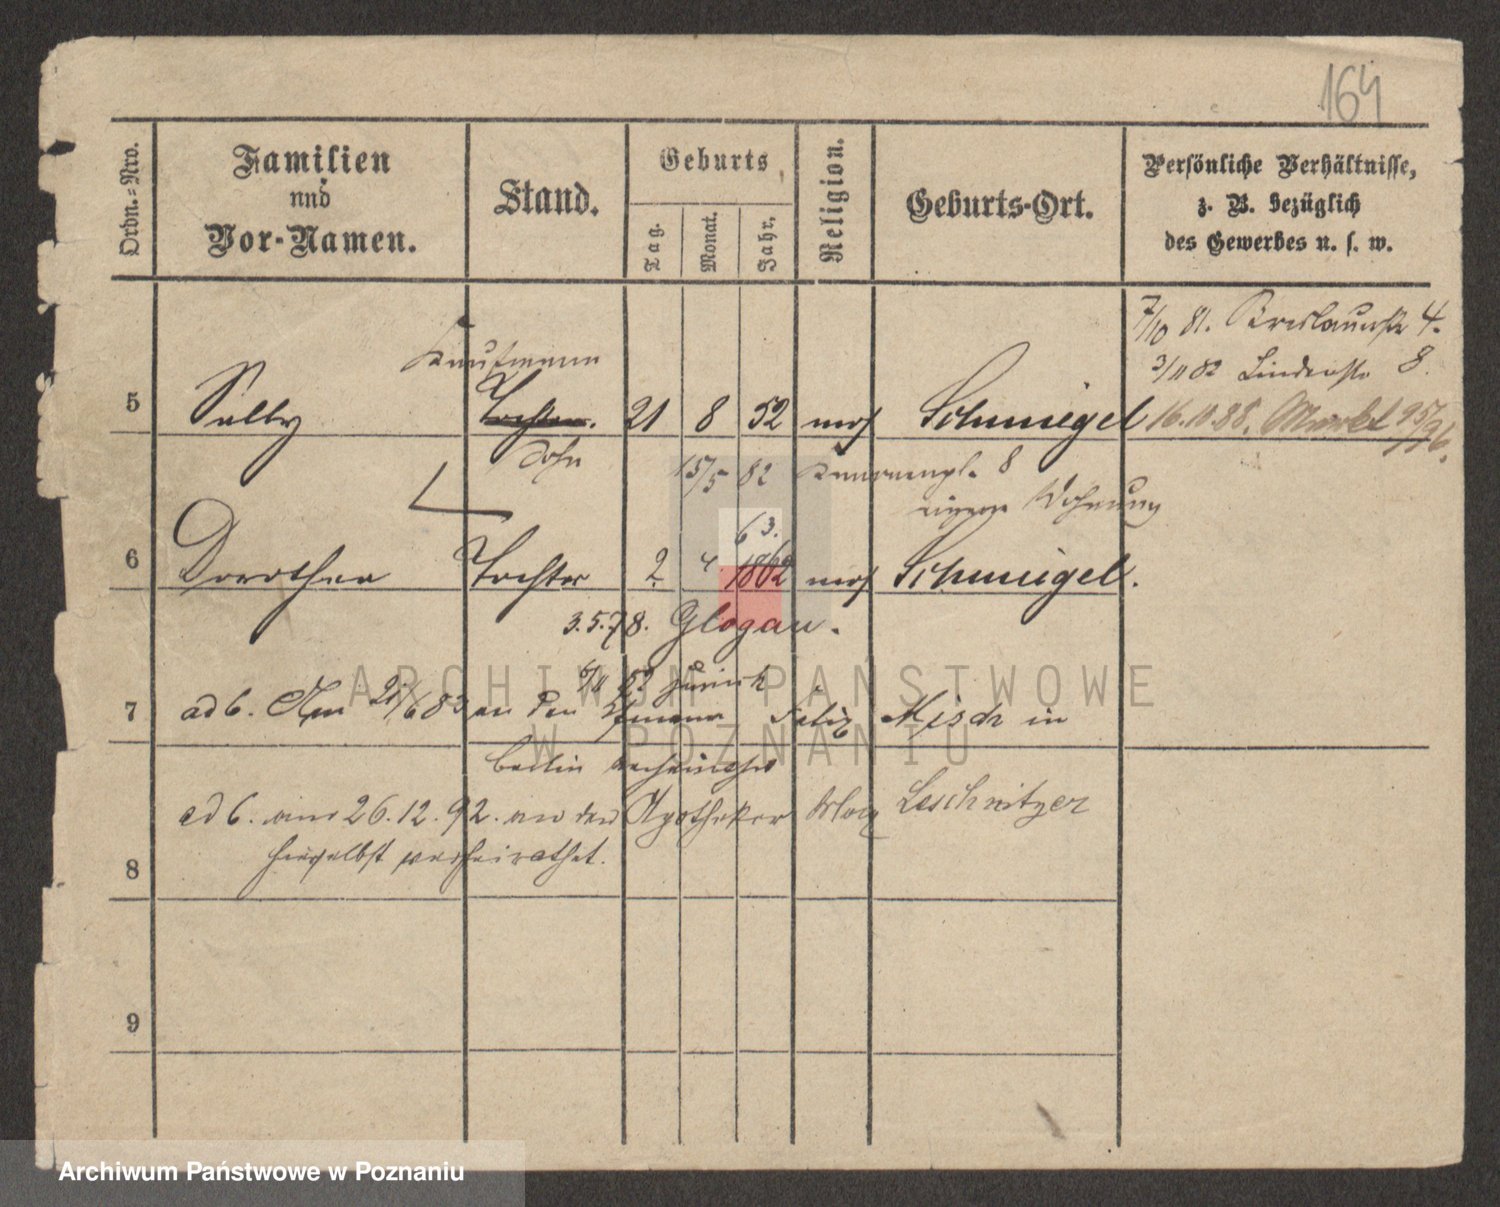 164
Ordn.-Nro.
Familien
und
Vor-Namen.
Stand.
Geburts
Tag.
Monat.
Jahr.
Religion.
Geburts-Ort.
Persönliche Verhältnisse,
z. B. bezüglich
des Gewerbes u. s. w.
7/10 81. Breslauerstr 4.
3/11 82 Lindenstr 8.
Kaufmann
5 Selby Tochter. 21 8 52 mos Schmiegel 16.10.88. Markt 95/96.
Sohn
15/5 82 8
eigene Wohnung
63.
6 Dorothea Tochter 2 4 1862 mos Schmiegel.
3.5.78. Glogau.
6/11 82 zurück
7 ad 6. Am 21/6 83 an den Kfmann Felix Misch in
Berlin verheirathet
ad 6. am 26.12.92. an den Apotheker Max Leschnitzer
8 hieselbst verheirathet.
9
ARCHIWUM PAŃSTWOWE
W POZNANIU
Archiwum Państwowe w Poznaniu